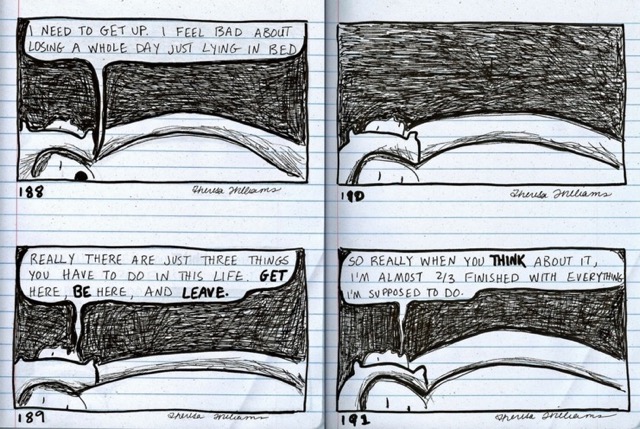 I NEED TO GET UP. I FEEL BAD ABOUT
LOSING A WHOLE DAY JUST LYING IN BED
188
Theresa Williams
REALLY THERE ARE JUST THREE THINGS
YOU HAVE TO DO IN THIS LIFE. GET
HERE, BE HERE, AND LEAVE.
189
Theresa Williams
190
Theresa Williams
SO REALLY WHEN YOU THINK ABOUT IT,
I'M ALMOST 2/3 FINISHED WITH EVERYTHING
I'M SUPPOSED TO DO.
191
Theresa Williams